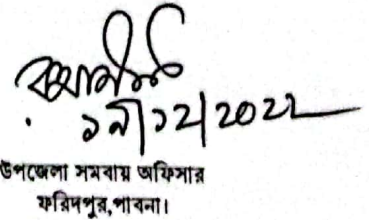 ১৯/১২/২০২২
উপজেলা সমবায় অফিসার
ফরিদপুর,পাবনা।